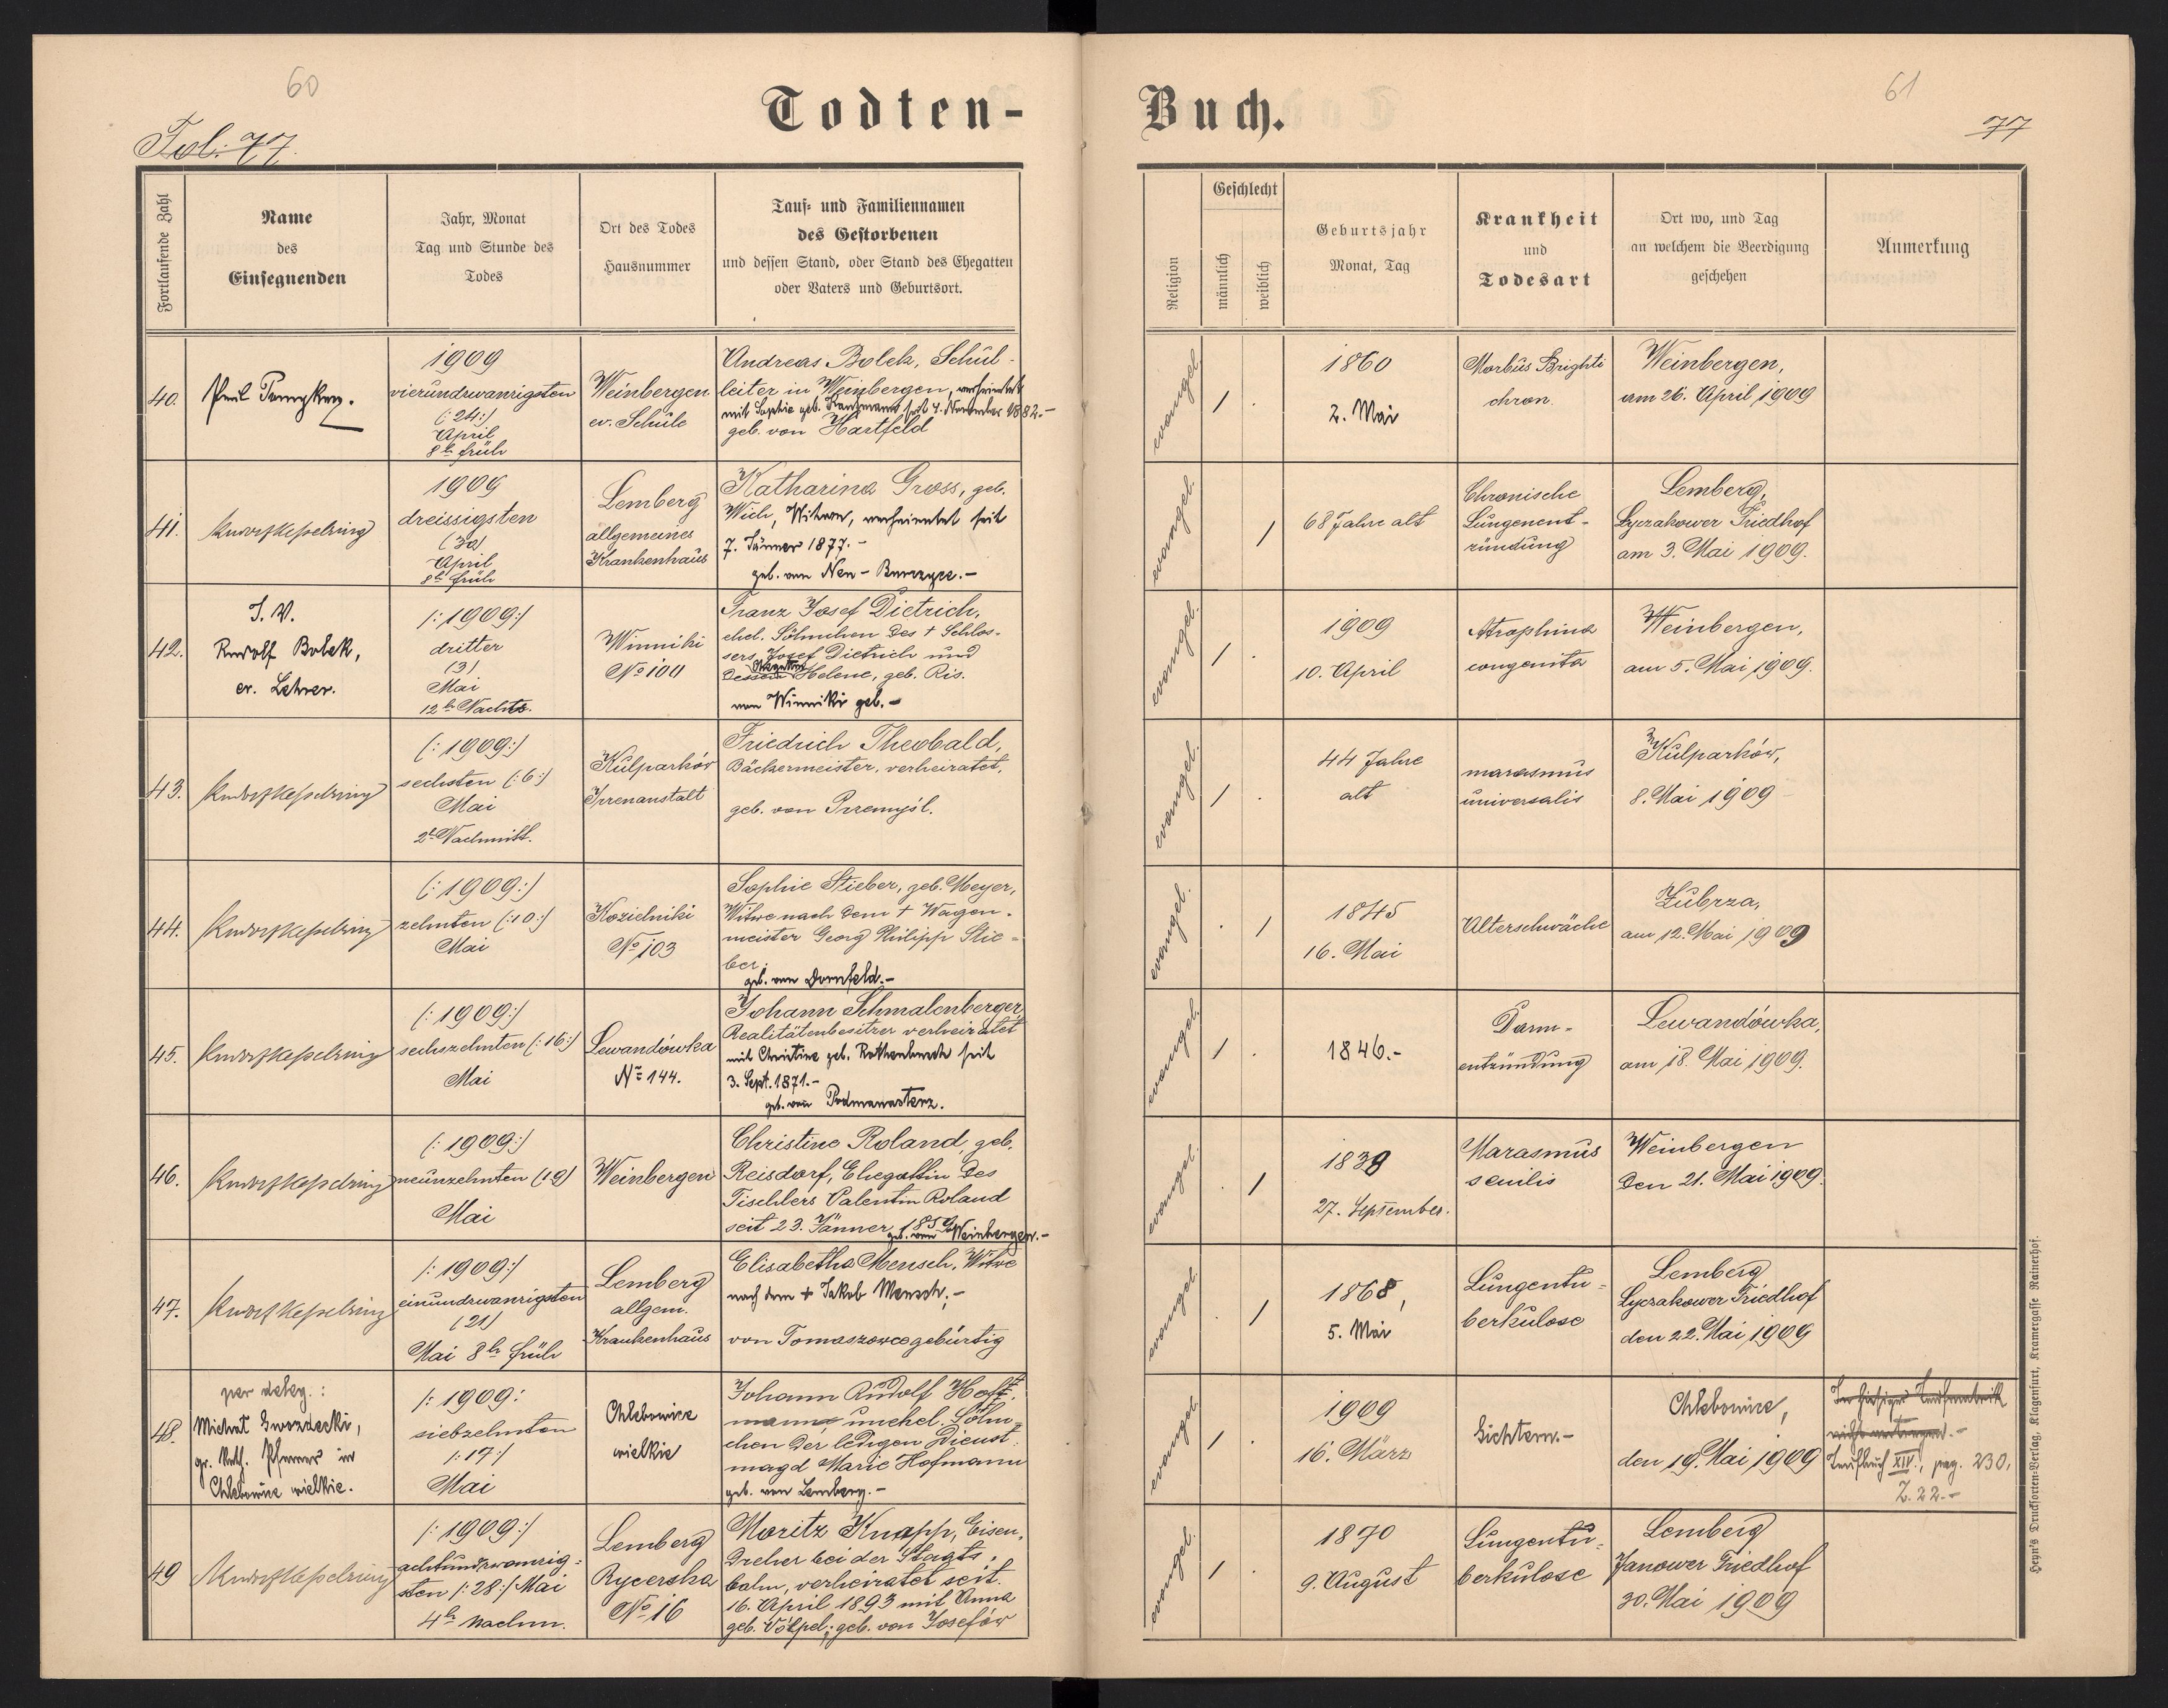 60
Fol. 77.
Todten-
Fortlaufende Zahl
Name
des
Einsegnenden
Jahr, Monat
Tag und Stunde des
Todes
Ort des Todes
Hausnummer
Tauf- und Familiennamen
des Gestorbenen
und dessen Stand, oder Stand des Ehegatten
oder Vaters und Geburtsort.
40.
1909
vierundzwanzigsten
(:24:)
April
8h früh
Weinbergen
ev. Schule
Andreas Bolek, Schul-
leiter in Weinbergen, verheiratet
mit Sophie geb. Kautzmann seit 4. November 1882.-
geb. von Hartfeld
41.
1909
dreissigsten
(30)
April
8h früh
Lemberg
allgemeines
Krankenhaus
Katharina Gross, geb.
Wich, Witwe, verheiratet seit
7. Jänner 1877.-
geb. von Neu-Burczyce.-
42.
I. V.
Rudolf Bolek,
ev. Lehrer.
/:1909:/
dritter
(3)
Mai
12h Nachts.
Winniki
No 100
Franz Josef Dietrich,
ehel. Söhnchen des † Schlos-
sers Josef Dietrich und
dessen Helene, geb. Ris.
von Winniki geb.-
43.
(:1909:)
sechsten (:6:)
Mai
2h Nachmitt.
Kulparków
Irrenanstalt
Friedrich Theobald,
Bäckermeister, verheiratet,
geb. von Przemyśl.
44.
(:1909:)
zehnten (:10:)
Mai
Kozielniki
No 103
Sophie Stieber, geb. Meyer,
Witwe nach dem † Wagen-
meister Georg Philipp Stie-
ber.
geb. von Dornfeld.-
45.
(:1909:)
sechszehnten (:16:)
Mai
Lewandówka
No 144.
Johann Schmalenberger,
Realitätenbesitzer verheiratet
mit Christine geb. Rothenbusch seit
3. Sept. 1871.-
geb. von Podmanasterz.
46.
(:1909:)
neunzehnten (19)
Mai
Weinbergen
Christine Roland, geb.
Reisdorf, Ehegattin des
Tischlers Valentin Roland
seit 23. Jänner 1859
geb. von Weinbergen.-
47.
/:1909:/
einundzwanzigsten
(21)
Mai 8h früh
Lemberg
allgem.
Krankenhaus
Elisabetha Mensch, Witwe
nach dem † Jakob Mensch,-
von Tomaszowce gebürtig
48.
per deleg.:
Michał Gwozdecki,
gr. kath. Pfarrer in
Chlebowice wielkie.
/:1909:
siebzehnten
/:17:/
Mai
Chlebowice
wielkie
Johann Rudolf Hoff-
mann unehel. Söhn-
chen der ledigen Dienst-
magd Marie Hofmann
geb. von Lemberg.-
49
/:1909:/
achtundzwanzig-
sten /:28:/ Mai
4h nachm.
Lemberg
Rycerska
No 16
Moritz Knapp, Eisen-
dreher bei der Staats-
bahn, verheiratet seit
16. April 1893 mit Anna
geb. Völpel; geb. von Josefów
61
77
Buch.
Religion
Geschlecht
männlich
weiblich
Geburtsjahr
Monat, Tag
Krankheit
und
Todesart
Ort wo, und Tag
an welchem die Beerdigung
geschehen
Anmerkung
evangel.
1 .
1860
2. Mai
Morbus Brighti
chron.
Weinbergen,
am 26. April 1909
evangel.
1
68 Jahre alt
Chronische
Lungenent-
zündung
Lemberg,
Lyczakower Friedhof
am 3. Mai 1909.
evangel.
1 .
1909
10. April
Atrophina
congenita
Weinbergen,
am 5. Mai 1909.
evangel.
1 .
44 Jahre
alt
marasmus
universalis
Kulparków,
8. Mai 1909
evangel.
. 1
1845
16. Mai
Alterschwäche
Zubrza,
am 12. Mai 1909
evangel.
1 .
1846.-
Darm-
entzündung
Lewandówka,
am 18. Mai 1909.
evangel.
. 1
1839
27. September.
Marasmus
senilis
Weinbergen
den 21. Mai 1909.
evangel.
. 1
1868,
5. Mai
Lungentu-
berkulose
Lemberg
Lyczakower Friedhof
den 22. Mai 1909
evangel.
1 .
1909
16. März
Gichtern.-
Chlebowice,
den 19. Mai 1909
Taufbuch XIV., pag. 230,
Z. 22.-
evangel.
1 .
1870
9. August
Lungentu-
berkulose
Lemberg
Janower Friedhof
30. Mai 1909
Heyn's Drucksorten-Verlag, Klagenfurt, Kramergasse Rainerhof.